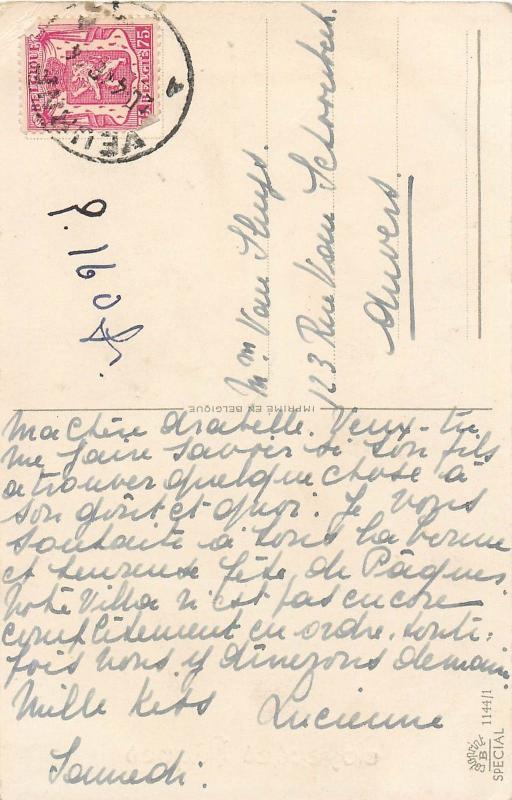 BELGIQUE 75c
BELGIË
VEURNE
9.160 fr.
Mme Van Sluys.
123 Rue Van Schoonbeke.
Anvers.
IMPRIMÉ EN BELGIQUE
Ma chère Arabelle. Veux-tu
me faire savoir si ton fils
a trouver quelque chose à
son goût et quoi. Je vous
souhaite à tous la bonne
et heureuse fête de Pâques
Notre villa n'est pas encore
complètement en ordre. toute-
fois nous y dînerons demain.
Mille Kess Lucienne
Samedi.
B
SPECIAL 1144/1